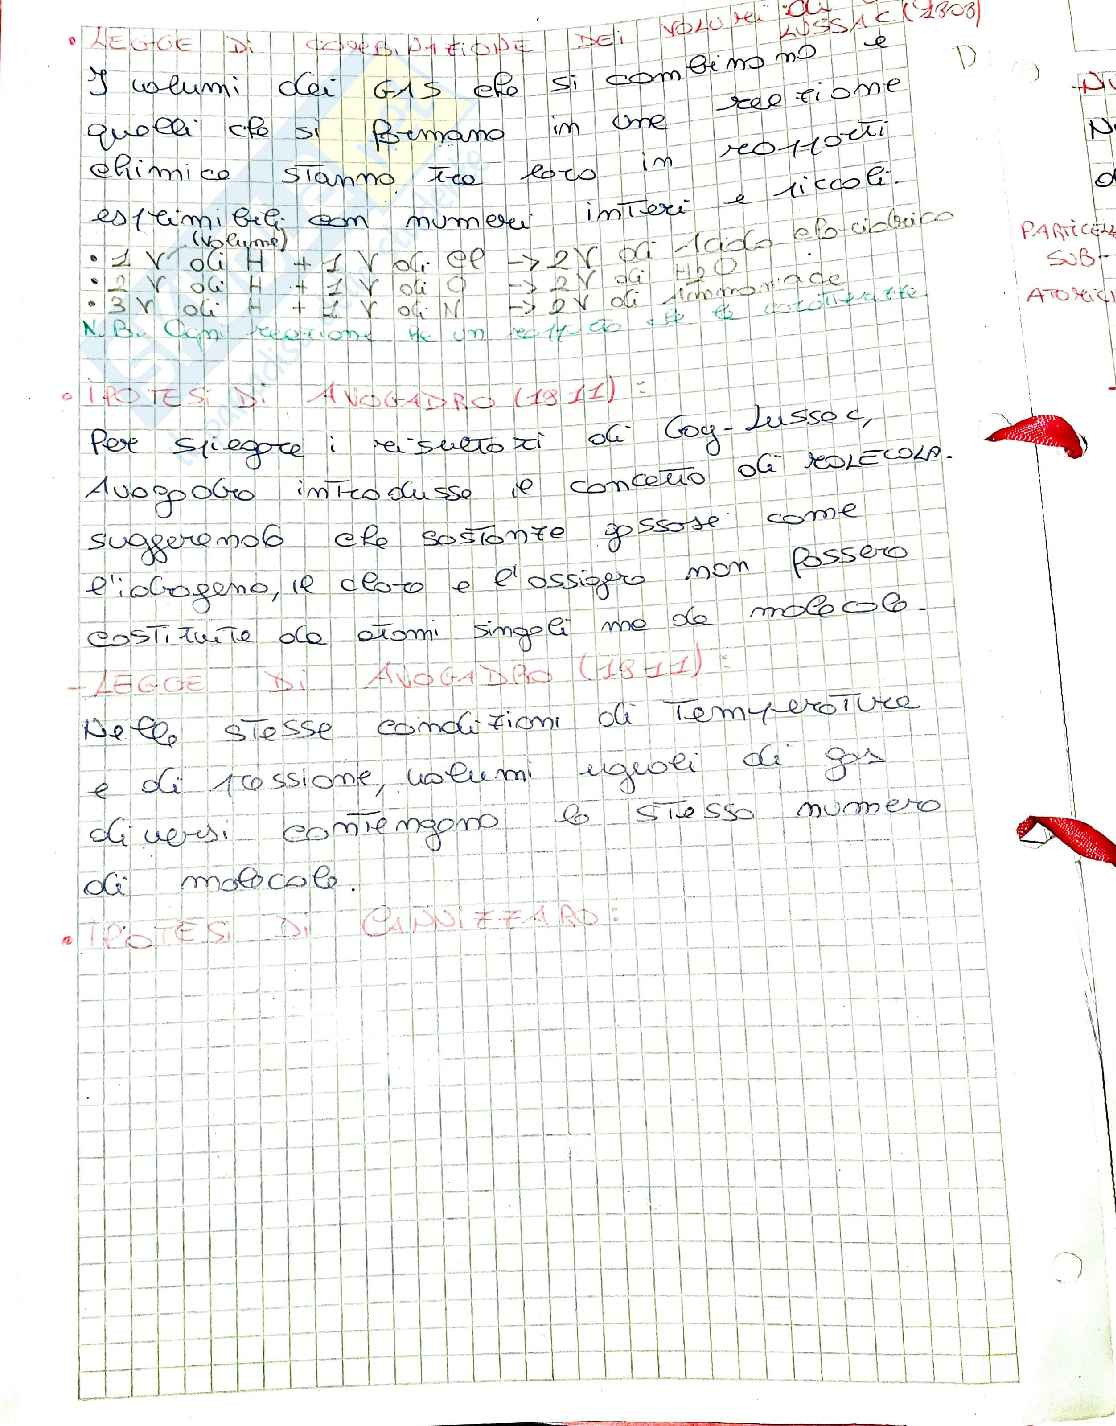 • LEGGE Di COMBINAZIONE DEI VOLUMI di
LUSSAC (1808)
I volumi dei GAS che si combinano e
quelli che si formano in una reazione
chimica stanno tra loro in rapporti
esprimibili con numeri interi e piccoli.
(volume)
• 1 V di H + 1 V di Cl → 2V di Acido cloridrico
• 2 V di H + 1 V di O → 2V di H2O
• 3 V di H + 1 V di N → 2V di Ammoniaca
N.B. Ogni reazione ha un
• IPOTESI Di AVOGADRO (1811) :
Per spiegare i risultati di Gay-Lussac,
Avogadro introdusse il concetto di MOLECOLA.
suggerendo che sostanze gassose come
l'idrogeno, il cloro e l'ossigeno non fossero
costituite da atomi singoli ma da molecole.
- LEGGE Di AVOGADRO (1811) :
Nelle stesse condizioni di Temperatura
e di pressione, volumi uguali di gas
diversi contengono lo stesso numero
di molecole.
• IPOTESI Di CANNIZZARO :
PARTICELLE
SUB-
ATOMICI